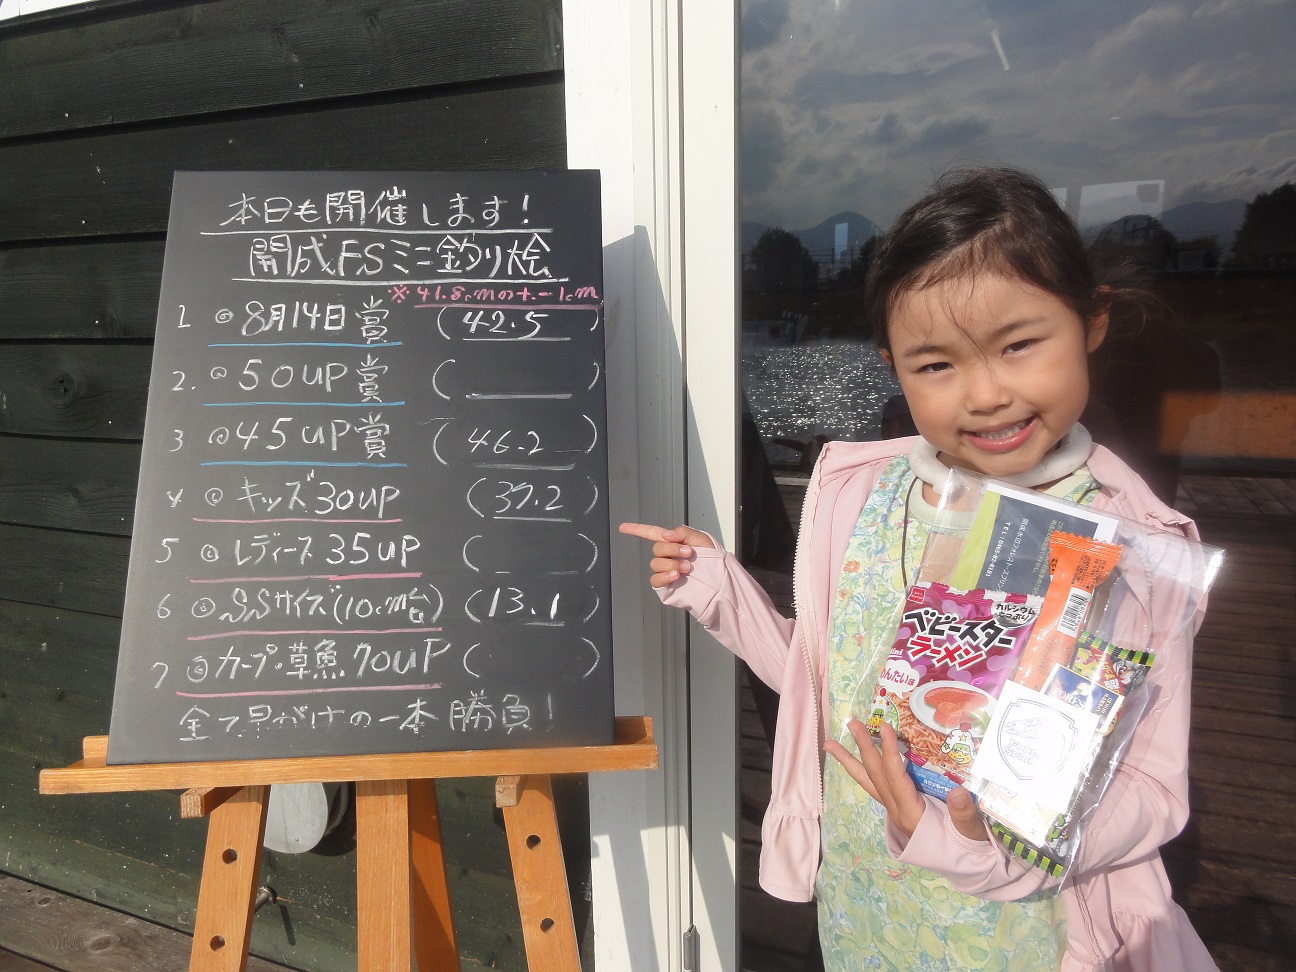 本日も開催します!
開成FSミニ釣り桧
※41.8cmの+-1cm
1 ◎8月14日賞 (42.5)
2. ◎50UP賞 ( )
3 ◎45UP賞 (46.2)
4 ◎キッズ30UP (37.2)
5 ◎レディース35UP ( )
6 ◎SSサイズ(10cm台) (13.1)
7 ◎カープ・草魚70UP ( )
全て早がけの一本勝負!
カルシウム
ベビースター
ラーメン
めんたい味